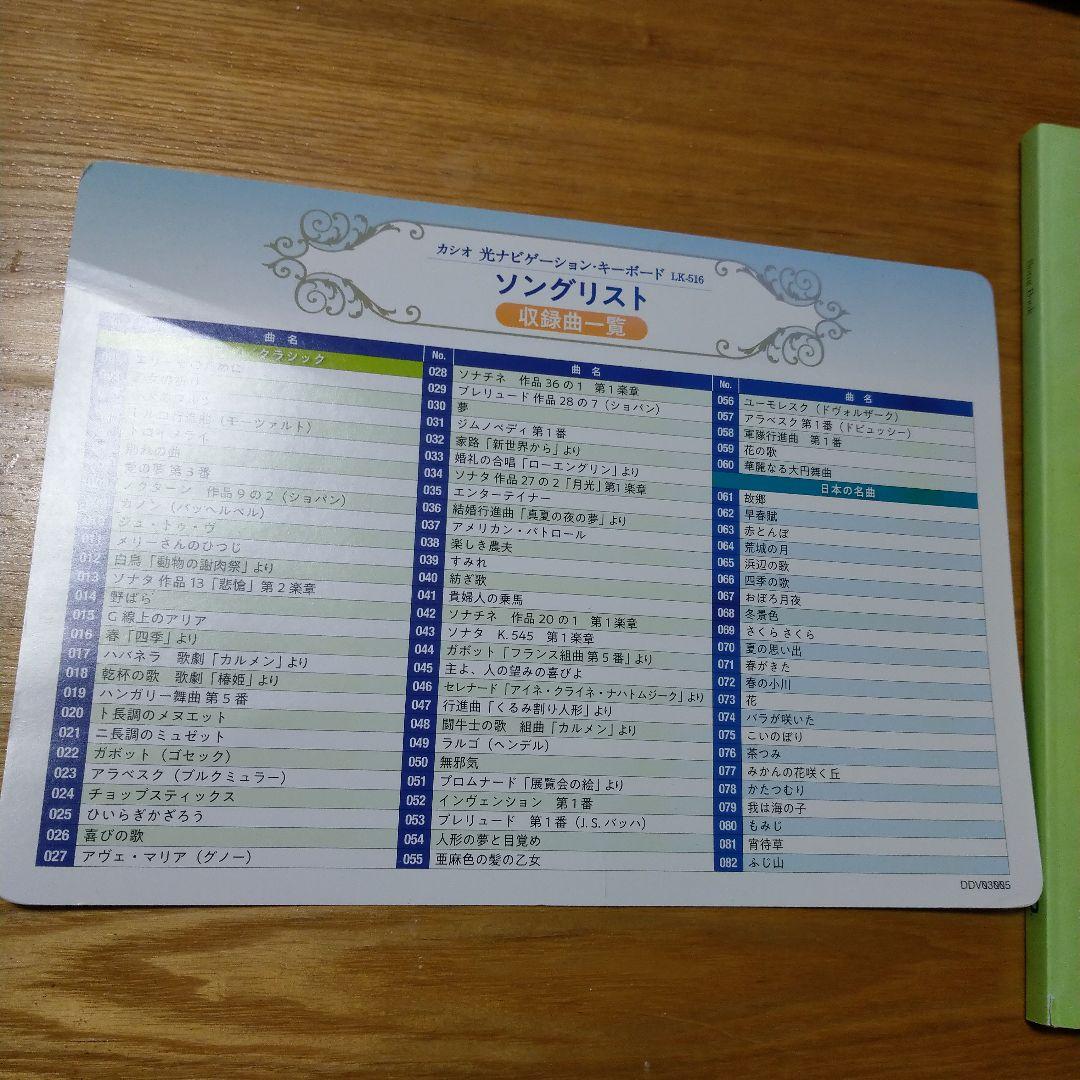 カシオ 光ナビゲーション・キーボード LK-516
ソングリスト
収録曲一覧
曲 名
クラシック
めに
(モーツァルト)
別れの曲
愛の夢 第3番
ノクターン 作品9の2(ショパン)
(パッヘルベル)
ジュ・トゥ・ヴ
011 メリーさんのひつじ
012 白鳥「動物の謝肉祭」より
013 ソナタ 作品13「悲愴」第2楽章
014 野ばら
015 G線上のアリア
016 春「四季」より
017 ハバネラ 歌劇「カルメン」より
018 乾杯の歌 歌劇「椿姫」より
019 ハンガリー舞曲 第5番
020 ト長調のメヌエット
021 ニ長調のミュゼット
022 ガボット(ゴセック)
023 アラベスク(ブルクミュラー)
024 チョップスティックス
025 ひいらぎかざろう
026 喜びの歌
027 アヴェ・マリア(グノー)
No. 曲 名
028 ソナチネ 作品36の1 第1楽章
029 プレリュード 作品28の7(ショパン)
030 夢
031 ジムノペディ 第1番
032 家路「新世界から」より
033 婚礼の合唱「ローエングリン」より
034 ソナタ 作品27の2「月光」第1楽章
035 エンターテイナー
036 結婚行進曲「真夏の夜の夢」より
037 アメリカン・パトロール
038 楽しき農夫
039 すみれ
040 紡ぎ歌
041 貴婦人の乗馬
042 ソナチネ 作品20の1 第1楽章
043 ソナタ K.545 第1楽章
044 ガボット「フランス組曲 第5番」より
045 主よ、人の望みの喜びよ
046 セレナード「アイネ・クライネ・ナハトムジーク」より
047 行進曲「くるみ割り人形」より
048 闘牛士の歌 組曲「カルメン」より
049 ラルゴ(ヘンデル)
050 無邪気
051 プロムナード「展覧会の絵」より
052 インヴェンション 第1番
053 プレリュード 第1番(J.S.バッハ)
054 人形の夢と目覚め
055 亜麻色の髪の乙女
No. 曲 名
056 ユーモレスク(ドヴォルザーク)
057 アラベスク 第1番(ドビュッシー)
058 軍隊行進曲 第1番
059 花の歌
060 華麗なる大円舞曲
日本の名曲
061 故郷
062 早春賦
063 赤とんぼ
064 荒城の月
065 浜辺の歌
066 四季の歌
067 おぼろ月夜
068 冬景色
069 さくら さくら
070 夏の思い出
071 春がきた
072 春の小川
073 花
074 バラが咲いた
075 こいのぼり
076 茶つみ
077 みかんの花咲く丘
078 かたつむり
079 我は海の子
080 もみじ
081 宵待草
082 ふじ山
DDV03005
Song Book